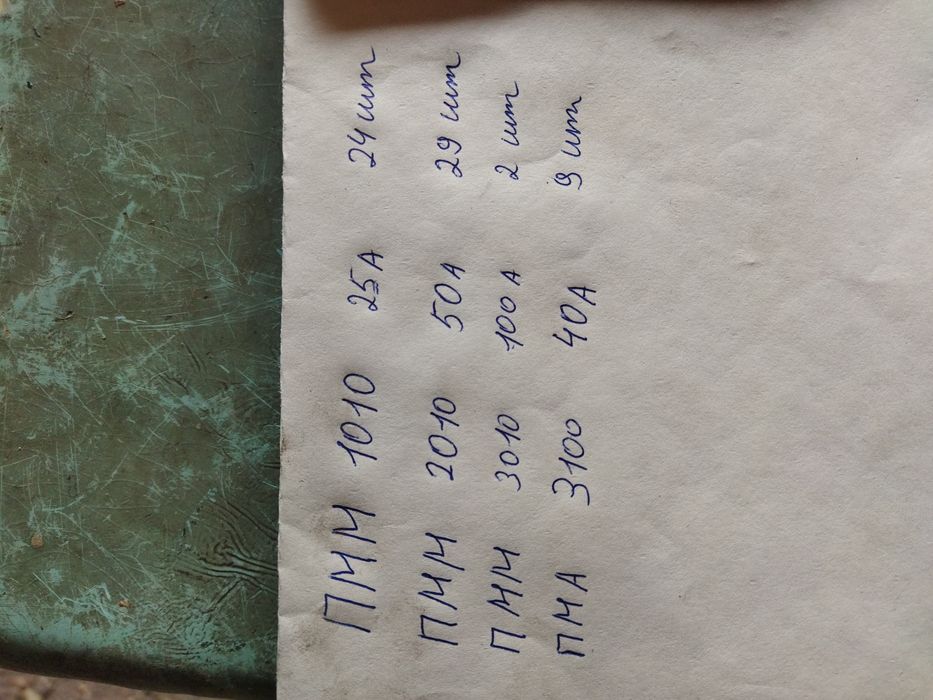 ПММ 1010 25А 24 шт
ПММ 2010 50А 29 шт
ПММ 3010 100А 2 шт
ПМА 3100 40А 9 шт